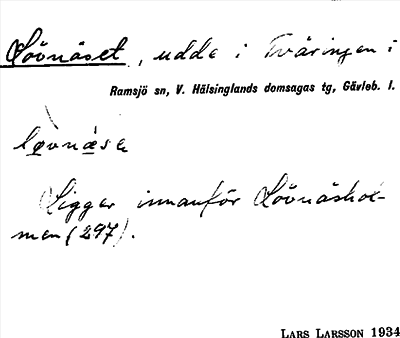 Lövnäset, udde i Tväringen i
Ramsjö sn, V. Hälsinglands domsagas tg, Gävleb. l.
lǫvnä́se
Ligger innanför Lövnäshol-
men (297).
LARS LARSSON 1934